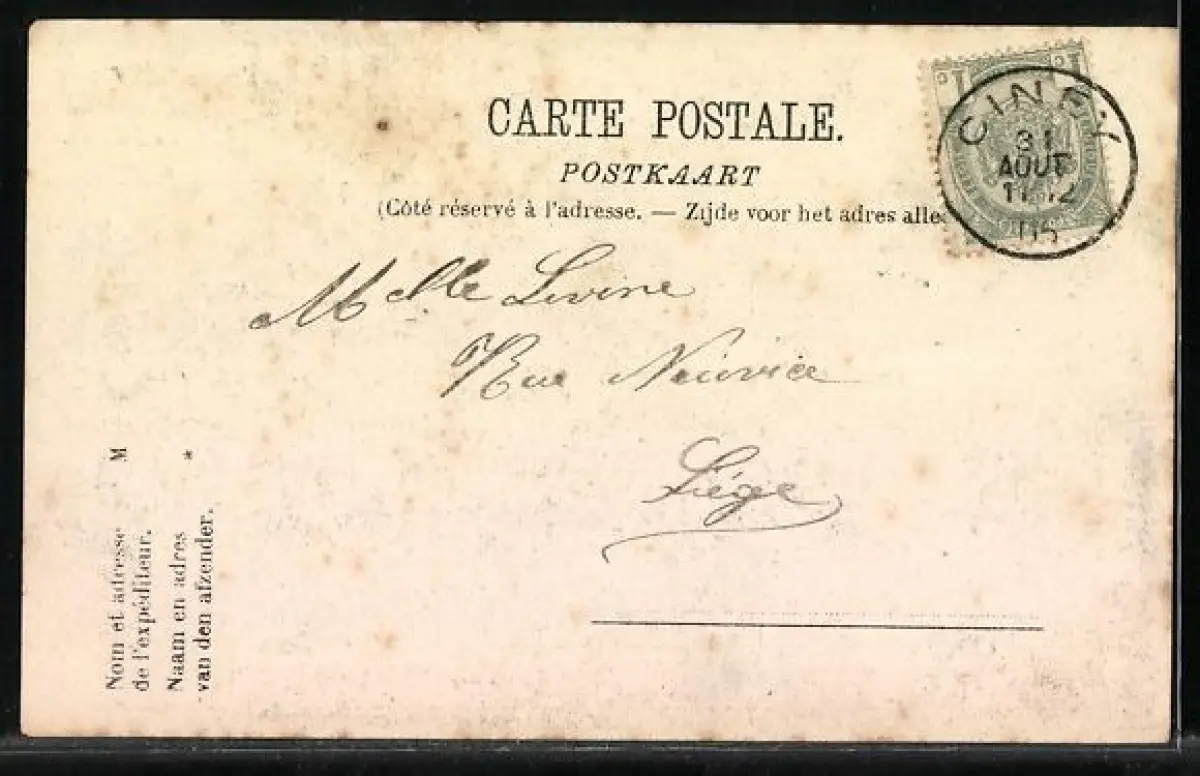 CARTE POSTALE.
POSTKAART
(Côté réservé à l'adresse. — Zijde voor het adres alle
1 c 1 c
CINEY
31
AOUT
11-12
05
Melle Livine
Rue Neuvice
Liége
Nom et adresse M
de l'expéditeur.
Naam en adres *
van den afzender.